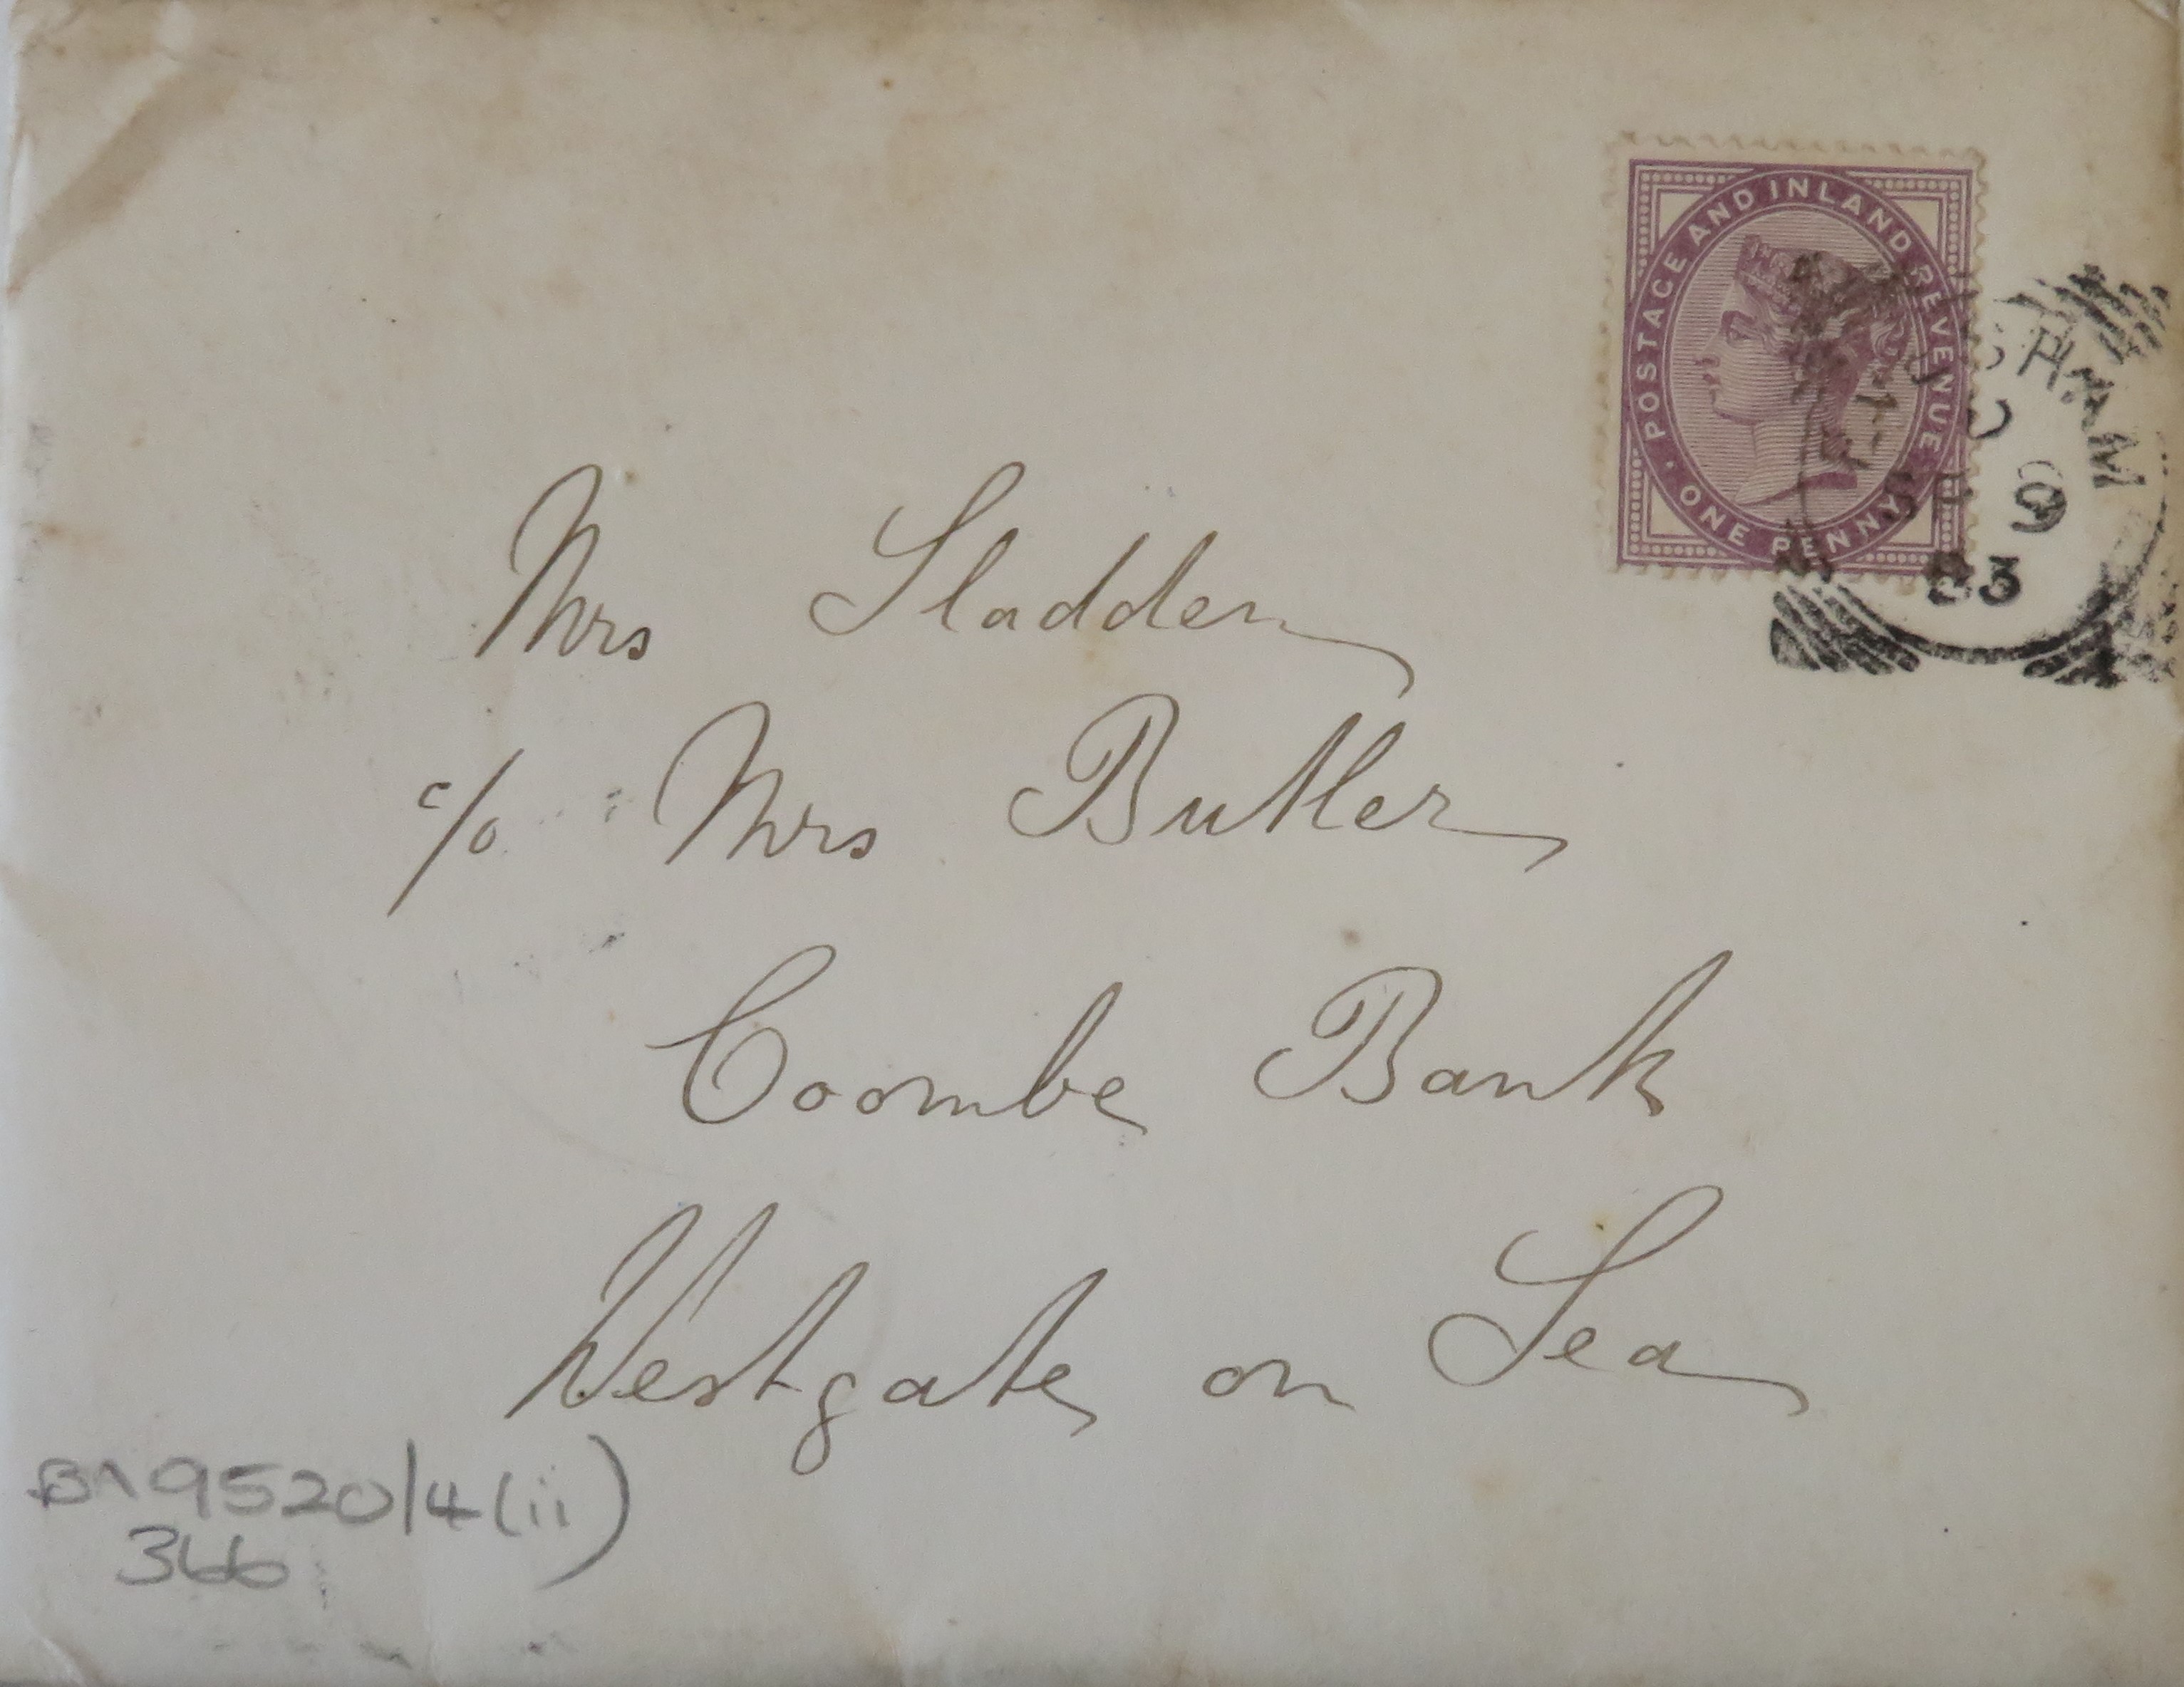 POSTAGE AND INLAND REVENUE
ONE PENNY
SP 9
Mrs Sladden
c/o Mrs Butler
Coombe Bank
Westgate on Sea
BA9520/4(ii)
366